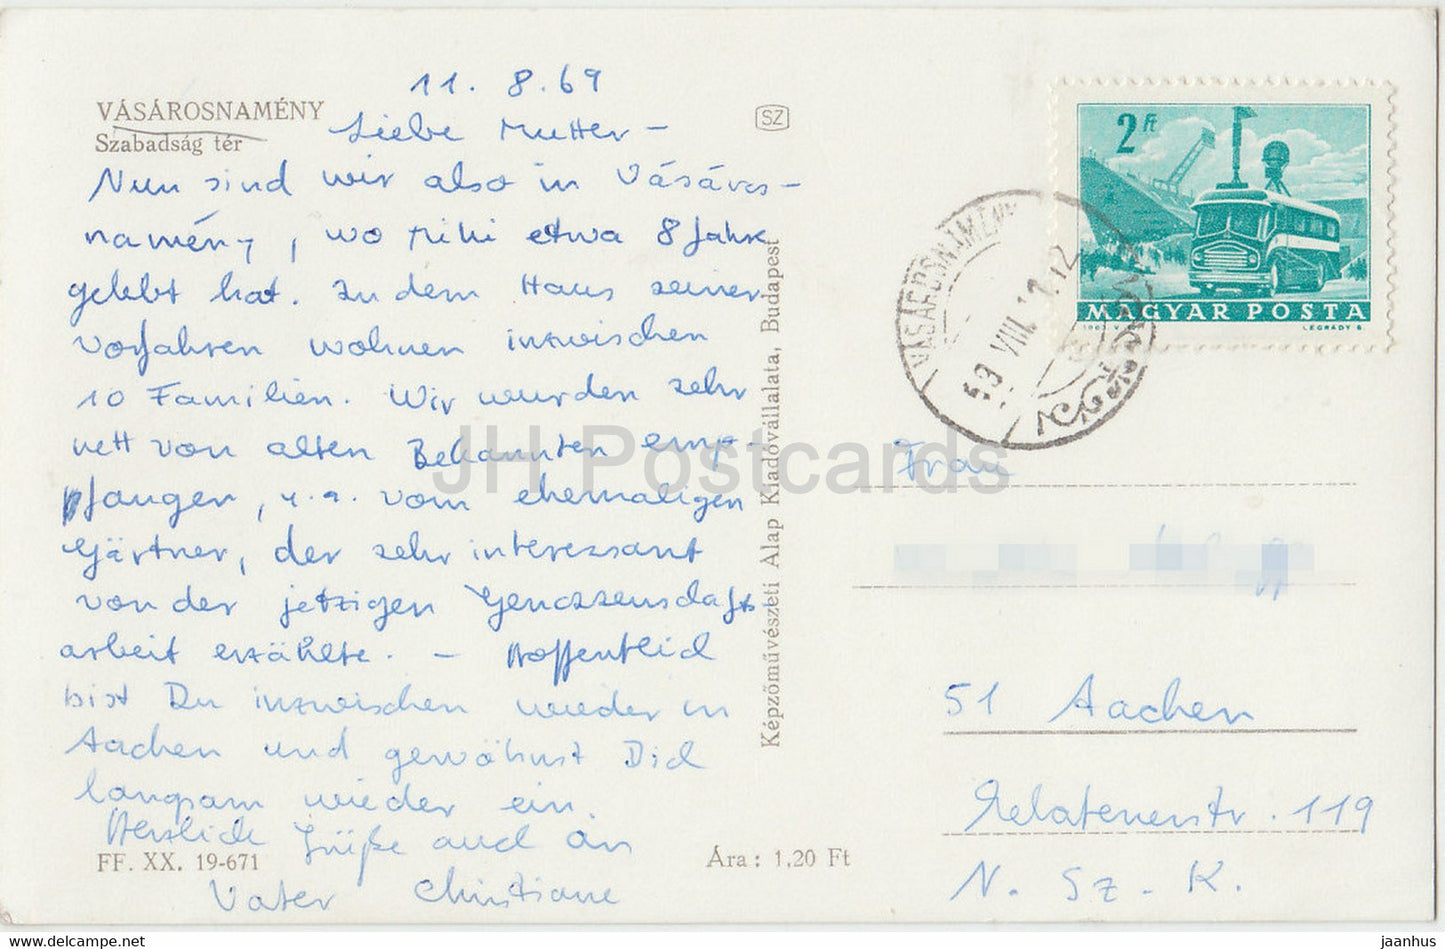 11. 8. 69
VÁSÁROSNAMÉNY
Szabadság tér
Liebe Mutter –
Nun sind wir also in Vásáros-
namény, wo Miki etwa 8 Jahre
gelebt hat. In dem Haus seiner
Vorfahren wohnen inzwischen
10 Familien. Wir wurden sehr
nett von alten Bekannten emp-
fangen, u. a. vom ehemaligen
Gärtner, der sehr interessant
von der jetzigen Genossenschafts
arbeit erzählte. – Hoffentlich
bist Du inzwischen wieder in
Aachen und gewöhnst Dich
langsam wieder ein.
Herzliche Grüße auch an
Vater Christiane
FF. XX. 19-671
Ára: 1,20 Ft
Képzőművészeti Alap Kiadóvállalata, Budapest
SZ
2 Ft
MAGYAR POSTA
LÉGRÁDY S
VÁSÁROSNAMÉNY
JH Postcards
Frau
51 Aachen
Relatenerstr. 119
N. Sz. K.
delcampe.net
jaanhus